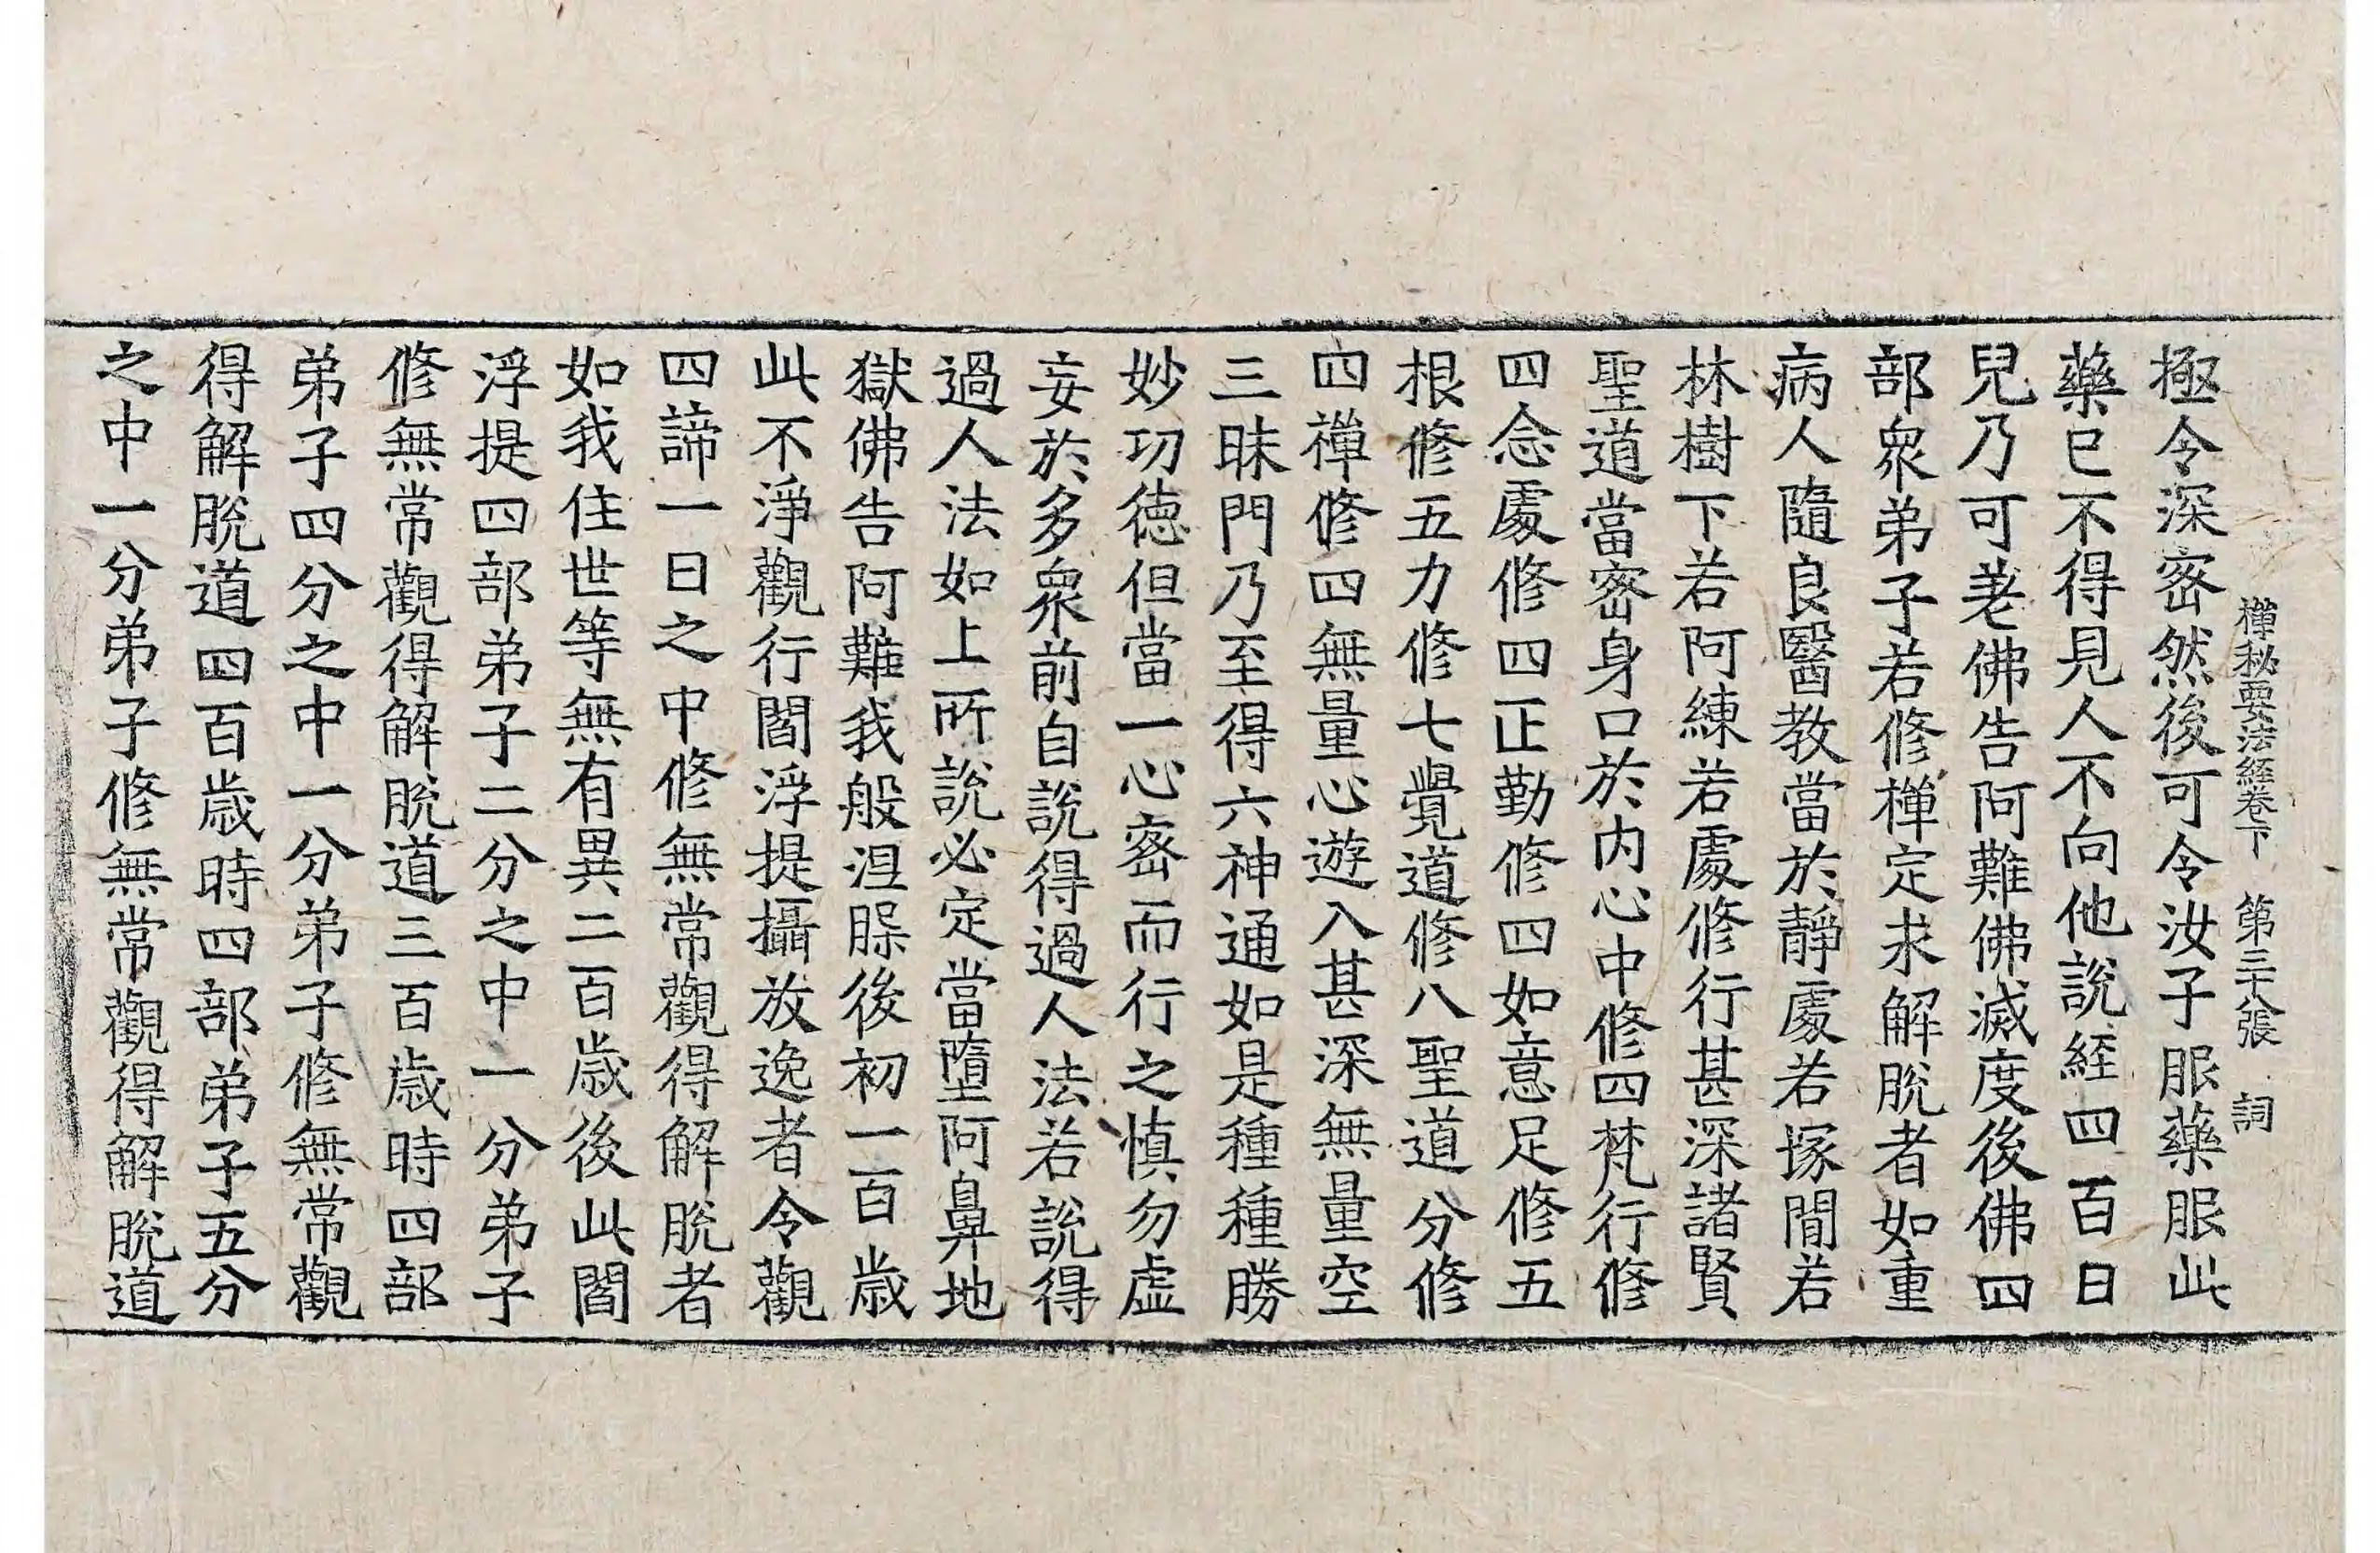 禪秘要法經卷下 第三十八張 詞
極令深密然後可令汝子服藥服此
藥已不得見人不向他說經四百日
兒乃可差佛告阿難佛滅度後佛四
部衆弟子若修禪定求解脫者如重
病人隨良醫教當於靜處若塚間若
林樹下若阿練若處修行甚深諸賢
聖道當密身口於內心中修四梵行修
四念處修四正勤修四如意足修五
根修五力修七覺道修八聖道分修
四禪修四無量心遊入甚深無量空
三昧門乃至得六神通如是種種勝
妙功德但當一心密而行之慎勿虛
妄於多衆前自說得過人法若說得
過人法如上所說必定當墮阿鼻地
獄佛告阿難我般涅槃後初一百歲
此不淨觀行閻浮提攝放逸者令觀
四諦一日之中修無常觀得解脫者
如我住世等無有異二百歲後此閻
浮提四部弟子二分之中一分弟子
修無常觀得解脫道三百歲時四部
弟子四分之中一分弟子修無常觀
得解脫道四百歲時四部弟子五分
之中一分弟子修無常觀得解脫道